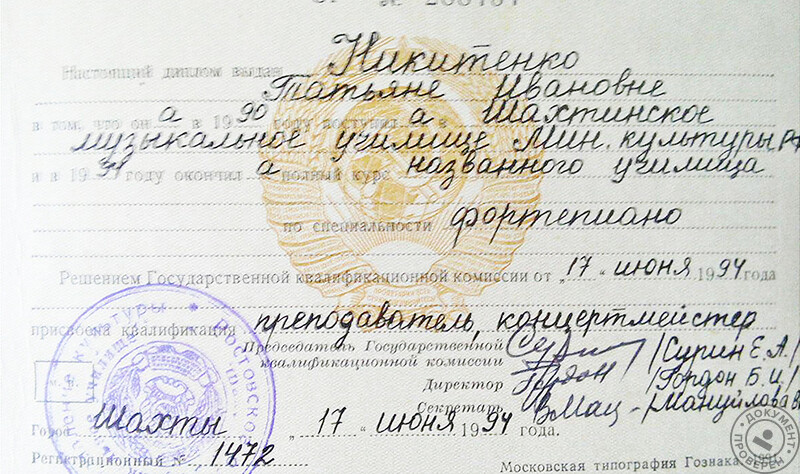 Настоящий диплом выдан Никитенко
Татьяне Ивановне
в том, что он а в 19 90 году поступил а в Шахтинское
музыкальное училище Мин. культуры РФ
и в 19 94 году окончил а полный курс названного училища
по специальности фортепиано
Решением Государственной квалификационной комиссии от „17“ июня 1994 года
присвоена квалификация преподаватель, концертмейстер
Председатель Государственной
квалификационной комиссии /Сурин Е.А./
Директор Гордон /Гордон, Б.И./
Секретарь ВМац - /Мануйлова
Город Шахты „17“ июня 1994 года.
Регистрационный № 1472
Московская типография Гознака. 1991.
ДОКУМЕНТ ПРОВЕРЕН